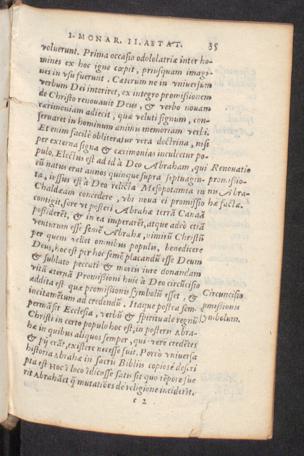 I. MONAR. II. AETAT. 35
voluerunt. Prima occasio odololatriæ inter ho-
mines ex hoc igne cœpit, priusquam imagi-
nes in vsu fuerunt. Cæterum ne in vniuersum
verbum Dei interiret, ex integro promissionem
de Christo renouauit Deus, & verbo nouam
cærimoniam adiecit, quæ veluti signum, con-
seruaret in hominum animis memoriam verbi.
Etenim facile obliteratur vera doctrina, nisi
per externa signa & cæremonias inculcetur po-
pulo. Electus est ad id à Deo Abraham, qui
cũ natus erat annos quinque supra septuagin-
ta, iussus est à Deo relicta Mesopotamia in
Chaldæam concedere, vbi noua ei promissio
contigit, fore vt posteri Abrahæ terrã Canaã
possiderẽt, & in ea imperarẽt, atque adeò etiã
venturum esse semẽ Abrahæ, nimirũ Christũ
per quem velit omnibus populis benedicere
Deus, hoc est per hoc semẽ placandũ esse Deum
& sublato peccato & mortis iure donandam
vitã æternã. Promissioni huic à Deo circũcisio
addita est quæ promissionis symbolũ esset, &
incitamẽtum ad credendũ. Itaque postea sem-
per mãsit Ecclesia, verbũ & spirituale regnũ
Christi in certo populo hoc est, in posteris Abra-
hæ in quibus aliquos semper, qui vere credẽtes
& pij erãt, existere necesse fuit. Porrò vniuersa
historia Abrahæ in sacris Biblijs copiosè descri
pta est. Hoc loco dixisse satis sit quo tẽpore fue
rit Abrahã et q̃ mutatiões de religione inciderit.
c 2
Renouatio
promissio-
nis Abra-
hæ facta.
Circuncisio
promissionis
symbolum.